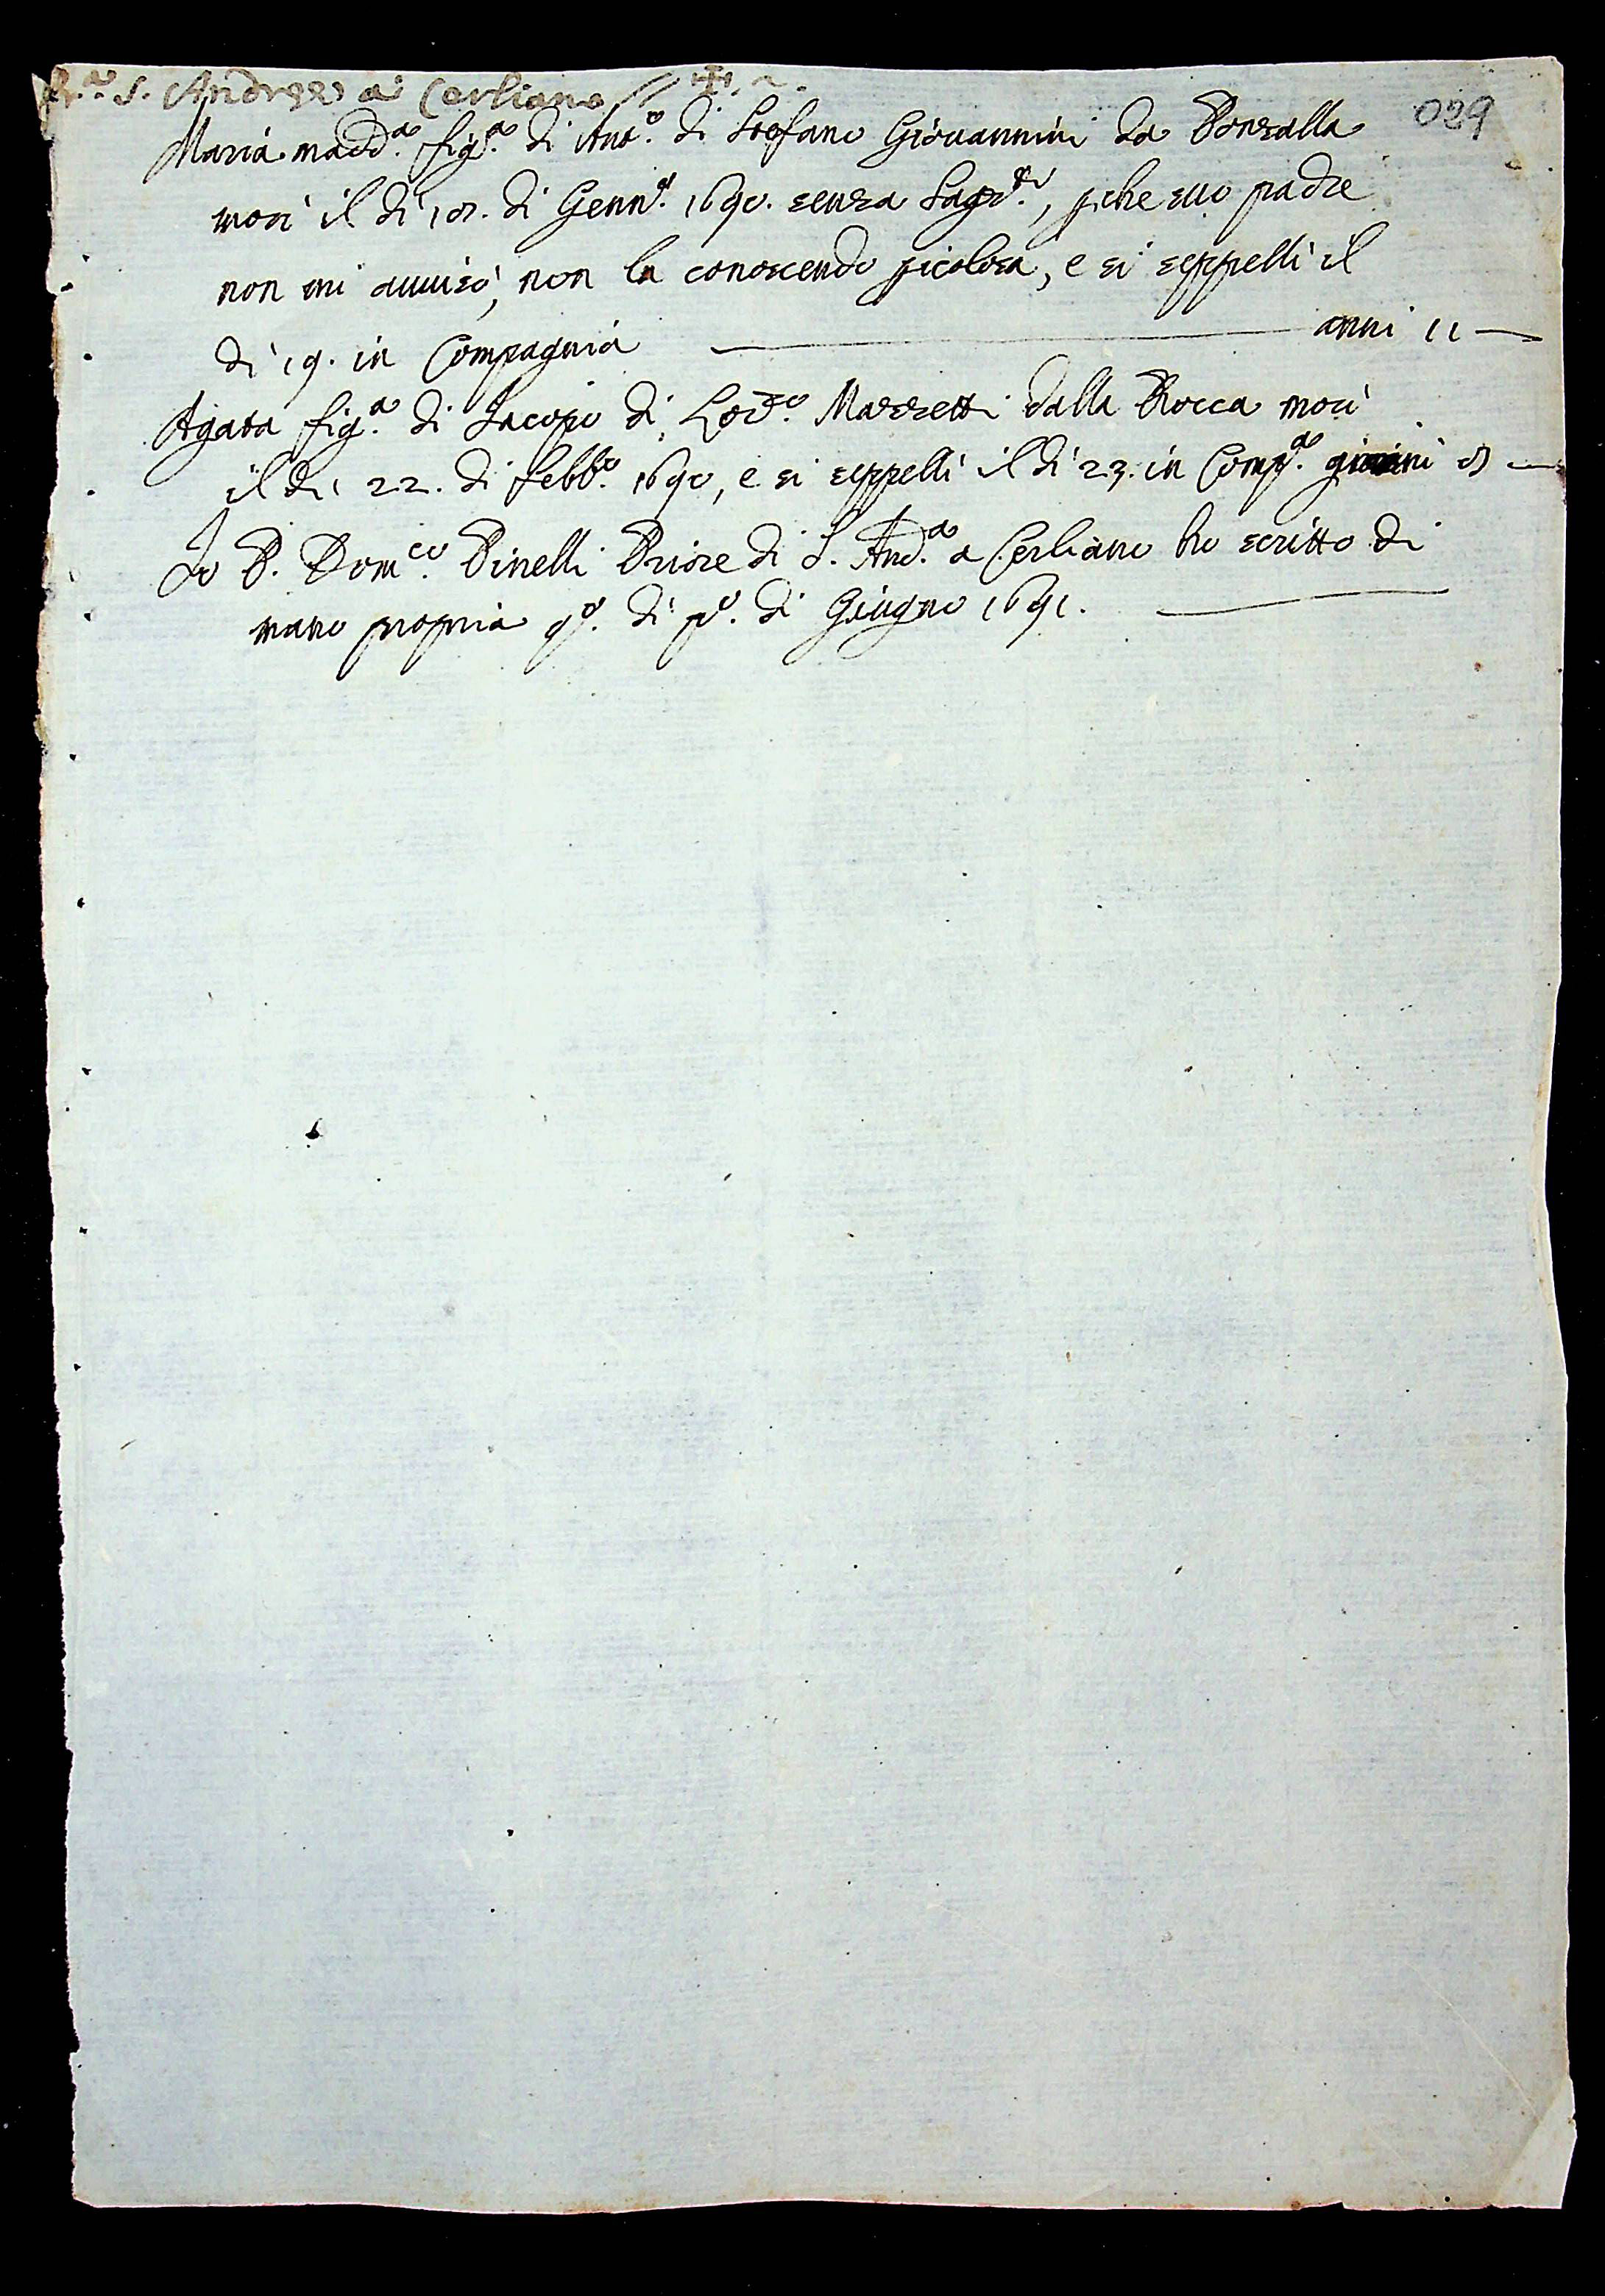 P.a S. Andrea a' Cerliano // ✠.
029
Maria madd.a fig.a di Ant.o di Stefano Giovannini da Ponzalla
morì il dì 18. di Genn.o 1690. senza Sagr.ti, pche suo padre
non mi auuisò, non la conoscendo picolosa, e si seppellì il
dì 19. in Compagnia ——— anni 11 —
Agata fig.a di Iacopo di Lor.o Mazzetti dalla Rocca morì
il dì 22. di Febb.o 1690, e si seppellì il dì 23. in Comp.a giorni 8 —
Io P. Dom.co Pinelli Priore di S. And.a a Cerliano ho scritto di
mano propria q.o dì p.o di Giugno 1691. ———